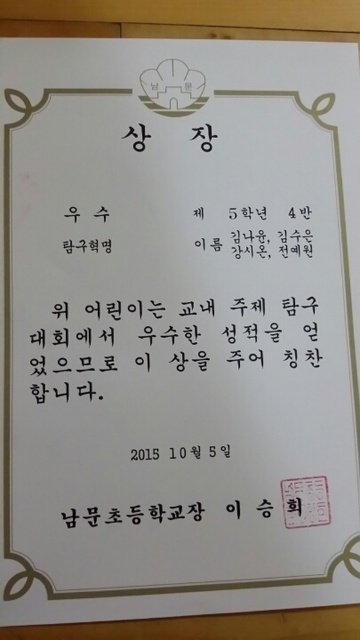 남 문
상 장
우 수 제 5학년 4반
탐구혁명 이름 김나윤, 김수은
강시온, 전예원
위 어린이는 교내 주제 탐구
대회에서 우수한 성적을 얻
었으므로 이 상을 주어 칭찬
합니다.
2015 10월 5일
남문초등학교장 이 승 희